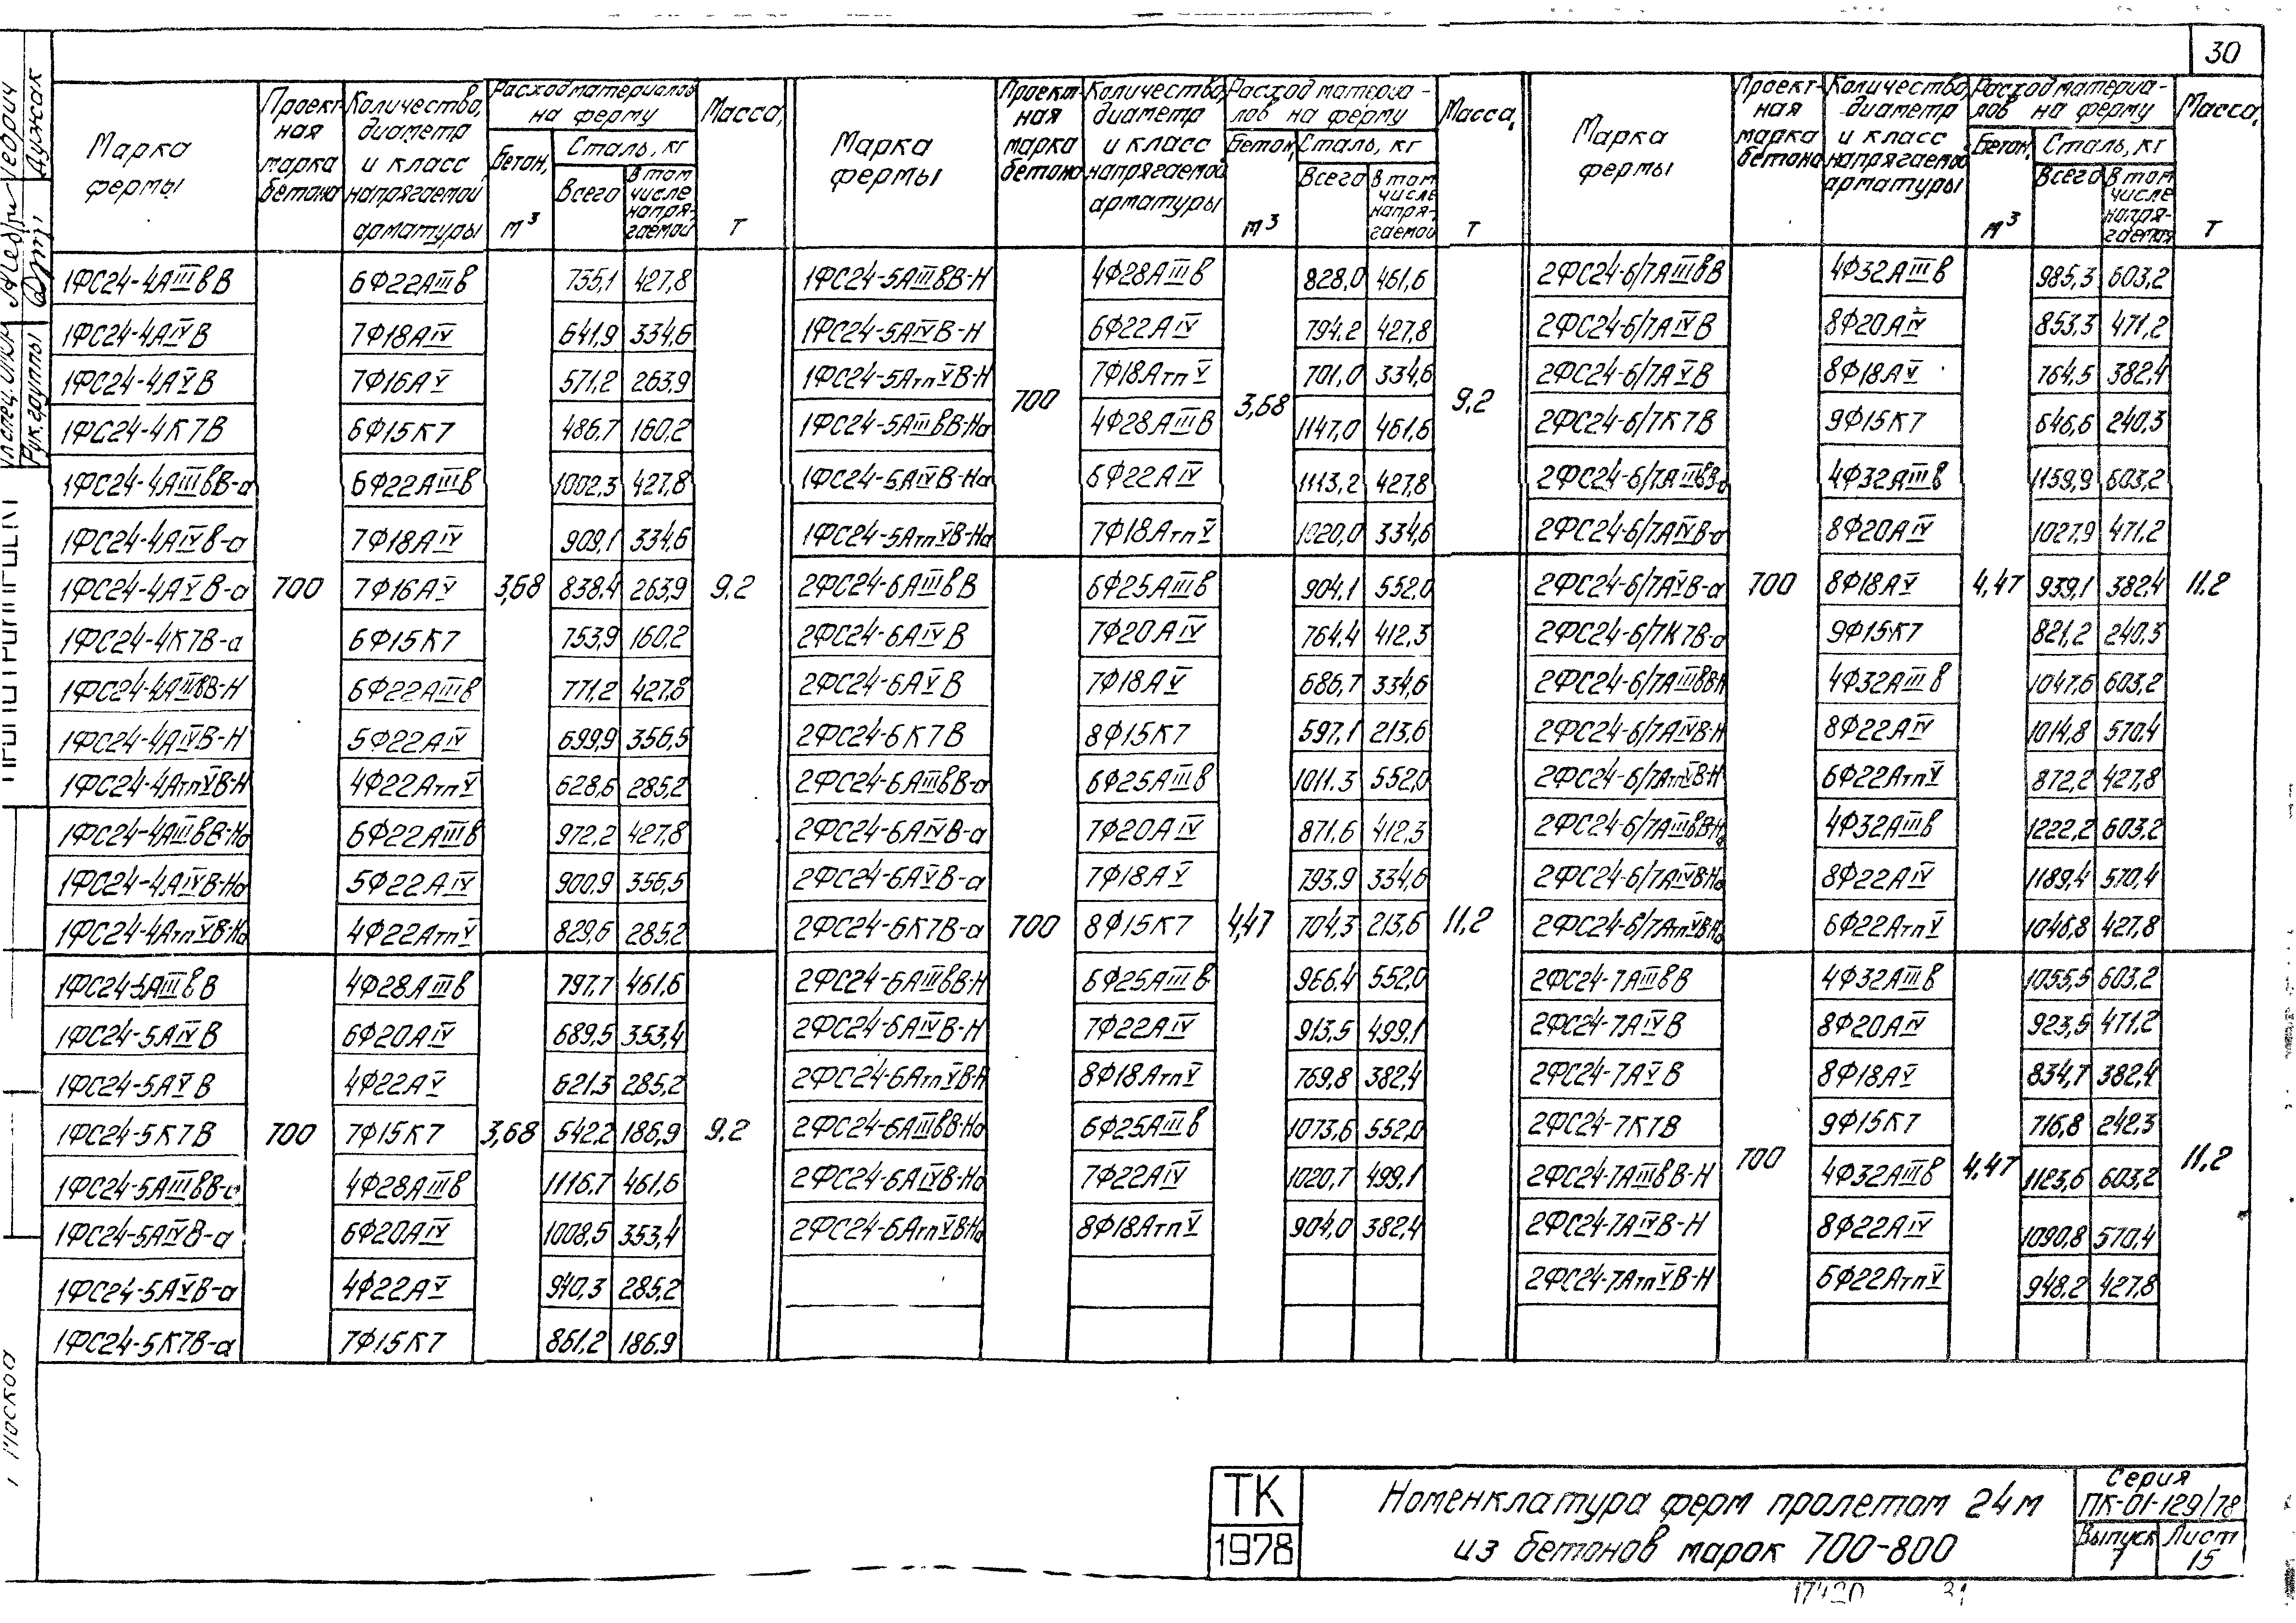 30
Марка фермы | Проектная марка бетона | Количество, диаметр и класс напрягаемой арматуры | Расход материалов на ферму | Бетон, м³ | Сталь, кг | Всего | В том числе напрягаемой | Масса, т
1ФС24-4АIIIвВ | 700 | 6Ф22АIIIв | 3,68 | 735,1 | 427,8 | 9.2
1ФС24-4АIVВ | 7Ф18АIV | 641,9 | 334,6
1ФС24-4АVВ | 7Ф16АV | 571,2 | 263,9
1ФС24-4К7В | 6Ф15К7 | 486,7 | 160,2
1ФС24-4АIIIвВ-а | 6Ф22АIIIв | 1002,3 | 427,8
1ФС24-4АIVВ-а | 7Ф18АIV | 909,1 | 334,6
1ФС24-4АVВ-а | 7Ф16АV | 838.4 | 263,9
1ФС24-4К7В-а | 6Ф15К7 | 753,9 | 160,2
1ФС24-4АIIIвВ-Н | 6Ф22АIIIв | 771,2 | 427,8
1ФС24-4АIVВ-Н | 5Ф22АIV | 699,9 | 356,5
1ФС24-4АтпVВ-Н | 4Ф22АтпV | 628,6 | 285,2
1ФС24-4АIIIвВ-На | 6Ф22АIIIв | 972,2 | 427,8
1ФС24-4АIVВ-На | 5Ф22АIV | 900,9 | 356,5
1ФС24-4АтпVВ-На | 4Ф22АтпV | 829,6 | 285,2
1ФС24-5АIIIвВ | 700 | 4Ф28АIIIв | 3,68 | 797,7 | 461,6 | 9.2
1ФС24-5АIVВ | 6Ф20АIV | 689,5 | 353,4
1ФС24-5АVВ | 4Ф22АV | 621,3 | 285,2
1ФС24-5К7В | 7Ф15К7 | 542,2 | 186,9
1ФС24-5АIIIвВ-а | 4Ф28АIIIв | 1116,7 | 461,6
1ФС24-5АIVВ-а | 6Ф20АIV | 1008,5 | 353,4
1ФС24-5АVВ-а | 4Ф22АV | 940,3 | 285,2
1ФС24-5К7В-а | 7Ф15К7 | 861,2 | 186,9
Марка фермы | Проектная марка бетона | Количество, диаметр и класс напрягаемой арматуры | Расход материалов на ферму | Бетон, м³ | Сталь, кг | Всего | В том числе напрягаемой | Масса, т
1ФС24-5АIIIвВ-Н | 700 | 4Ф28АIIIв | 3,68 | 828,0 | 461,6 | 9.2
1ФС24-5АIVВ-Н | 6Ф22АIV | 794,2 | 427,8
1ФС24-5АтпVВ-Н | 7Ф18АтпV | 701,0 | 334,6
1ФС24-5АIIIвВ-На | 4Ф28АIIIв | 1147,0 | 461,6
1ФС24-5АIVВ-На | 6Ф22АIV | 1113,2 | 427,8
1ФС24-5АтпVВ-На | 7Ф18АтпV | 1020,0 | 334,6
2ФС24-6АIIIвВ | 700 | 6Ф25АIIIв | 4,47 | 904,1 | 552,0 | 11.2
2ФС24-6АIVВ | 7Ф20АIV | 764,4 | 412,3
2ФС24-6АVВ | 7Ф18АV | 686,7 | 334,6
2ФС24-6К7В | 8Ф15К7 | 597,1 | 213,6
2ФС24-6АIIIвВ-а | 6Ф25АIIIв | 1011.3 | 552,0
2ФС24-6АIVВ-а | 7Ф20АIV | 871,6 | 412,3
2ФС24-6АVВ-а | 7Ф18АV | 793,9 | 334,6
2ФС24-6К7В-а | 8Ф15К7 | 704,3 | 213,6
2ФС24-6АIIIвВ-Н | 6Ф25АIIIв | 966.4 | 552,0
2ФС24-6АIVВ-Н | 7Ф22АIV | 913,5 | 499,1
2ФС24-6АтпVВ-Н | 8Ф18АтпV | 769,8 | 382,4
2ФС24-6АIIIвВ-На | 6Ф25АIIIв | 1073,6 | 552,0
2ФС24-6АIVВ-На | 7Ф22АIV | 1020,7 | 499,1
2ФС24-6АтпVВ-На | 8Ф18АтпV | 904,0 | 382,4
Марка фермы | Проектная марка бетона | Количество, диаметр и класс напрягаемой арматуры | Расход материалов на ферму | Бетон, м³ | Сталь, кг | Всего | В том числе напрягаемая | Масса, т
2ФС24-6/7АIIIвВ | 700 | 4Ф32АIIIв | 4,47 | 985,3 | 603,2 | 11.2
2ФС24-6/7АIVВ | 8Ф20АIV | 853,3 | 471,2
2ФС24-6/7АVВ | 8Ф18АV | 764,5 | 382,4
2ФС24-6/7К7В | 9Ф15К7 | 646,6 | 240,3
2ФС24-6/7АIIIвВ-а | 4Ф32АIIIв | 1159,9 | 603,2
2ФС24-6/7АIVВ-а | 8Ф20АIV | 1027,9 | 471,2
2ФС24-6/7АVВ-а | 8Ф18АV | 939,1 | 382,4
2ФС24-6/7К7В-а | 9Ф15К7 | 821,2 | 240,3
2ФС24-6/7АIIIвВ-Н | 4Ф32АIIIв | 1047,6 | 603,2
2ФС24-6/7АIVВ-Н | 8Ф22АIV | 1014,8 | 570,4
2ФС24-6/7АтпVВ-Н | 6Ф22АтпV | 872,2 | 427,8
2ФС24-6/7АIIIвВ-На | 4Ф32АIIIв | 1222,2 | 603,2
2ФС24-6/7АIVВ-На | 8Ф22АIV | 1189,4 | 570,4
2ФС24-6/7АтпVВ-На | 6Ф22АтпV | 1046,8 | 427,8
2ФС24-7АIIIвВ | 700 | 4Ф32АIIIв | 4,47 | 1055,5 | 603,2 | 11.2
2ФС24-7АIVВ | 8Ф20АIV | 923,5 | 471,2
2ФС24-7АVВ | 8Ф18АV | 834,7 | 382,4
2ФС24-7К7В | 9Ф15К7 | 716,8 | 242,3
2ФС24-7АIIIвВ-Н | 4Ф32АIIIв | 1123,6 | 603,2
2ФС24-7АIVВ-Н | 8Ф22АIV | 1090,8 | 570,4
2ФС24-7АтпVВ-Н | 6Ф22АтпV | 948,2 | 427,8
ТК
1978
Номенклатура ферм пролетом 24м
из бетонов марок 700-800
Серия
ПК-01-129/78
Выпуск Лист
1 15
Рук.группы
Дужак
Москва